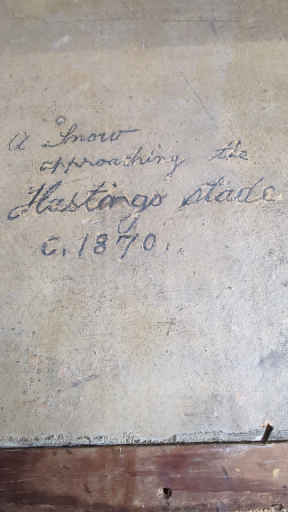 A Snow
approaching the
Hastings stade
c. 1870.